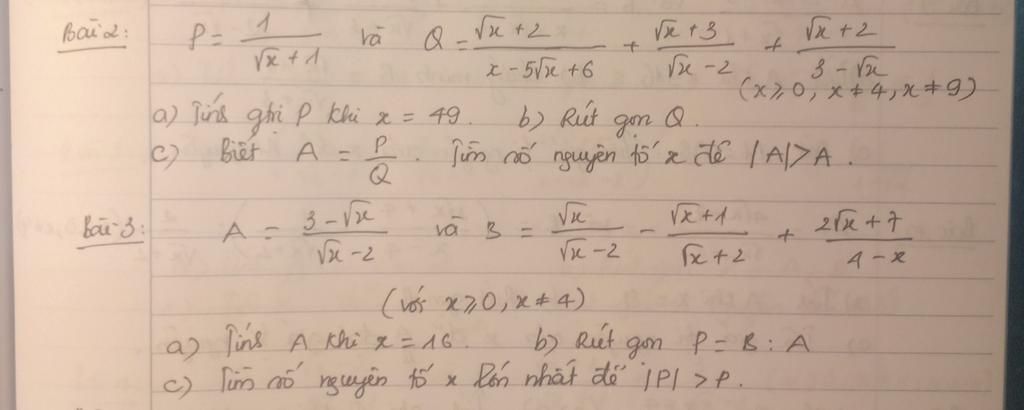 Bài 2: P = \frac{1}{\sqrt{x}+1} và Q = \frac{\sqrt{x}+2}{x-5\sqrt{x}+6} + \frac{\sqrt{x}+3}{\sqrt{x}-2} + \frac{\sqrt{x}+2}{3 \sqrt{x}}
(x ≥ 0, x ≠ 4, x ≠ 9)
a) Tính gtri P khi x = 49. b) Rút gọn Q.
c) Biết A = \frac{P}{Q}. Tìm số nguyên tố x để |A| > A.
Bài 3: A = \frac{3-\sqrt{x}}{\sqrt{x}-2} và B = \frac{\sqrt{x}}{\sqrt{x}-2} - \frac{\sqrt{x}+1}{\sqrt{x}+2} + \frac{2\sqrt{x}+7}{4-x}
(với x ≥ 0, x ≠ 4)
a) Tính A khi x = 16. b) Rút gọn P = B : A
c) Tìm số nguyên tố x lớn nhất để |P| > P.